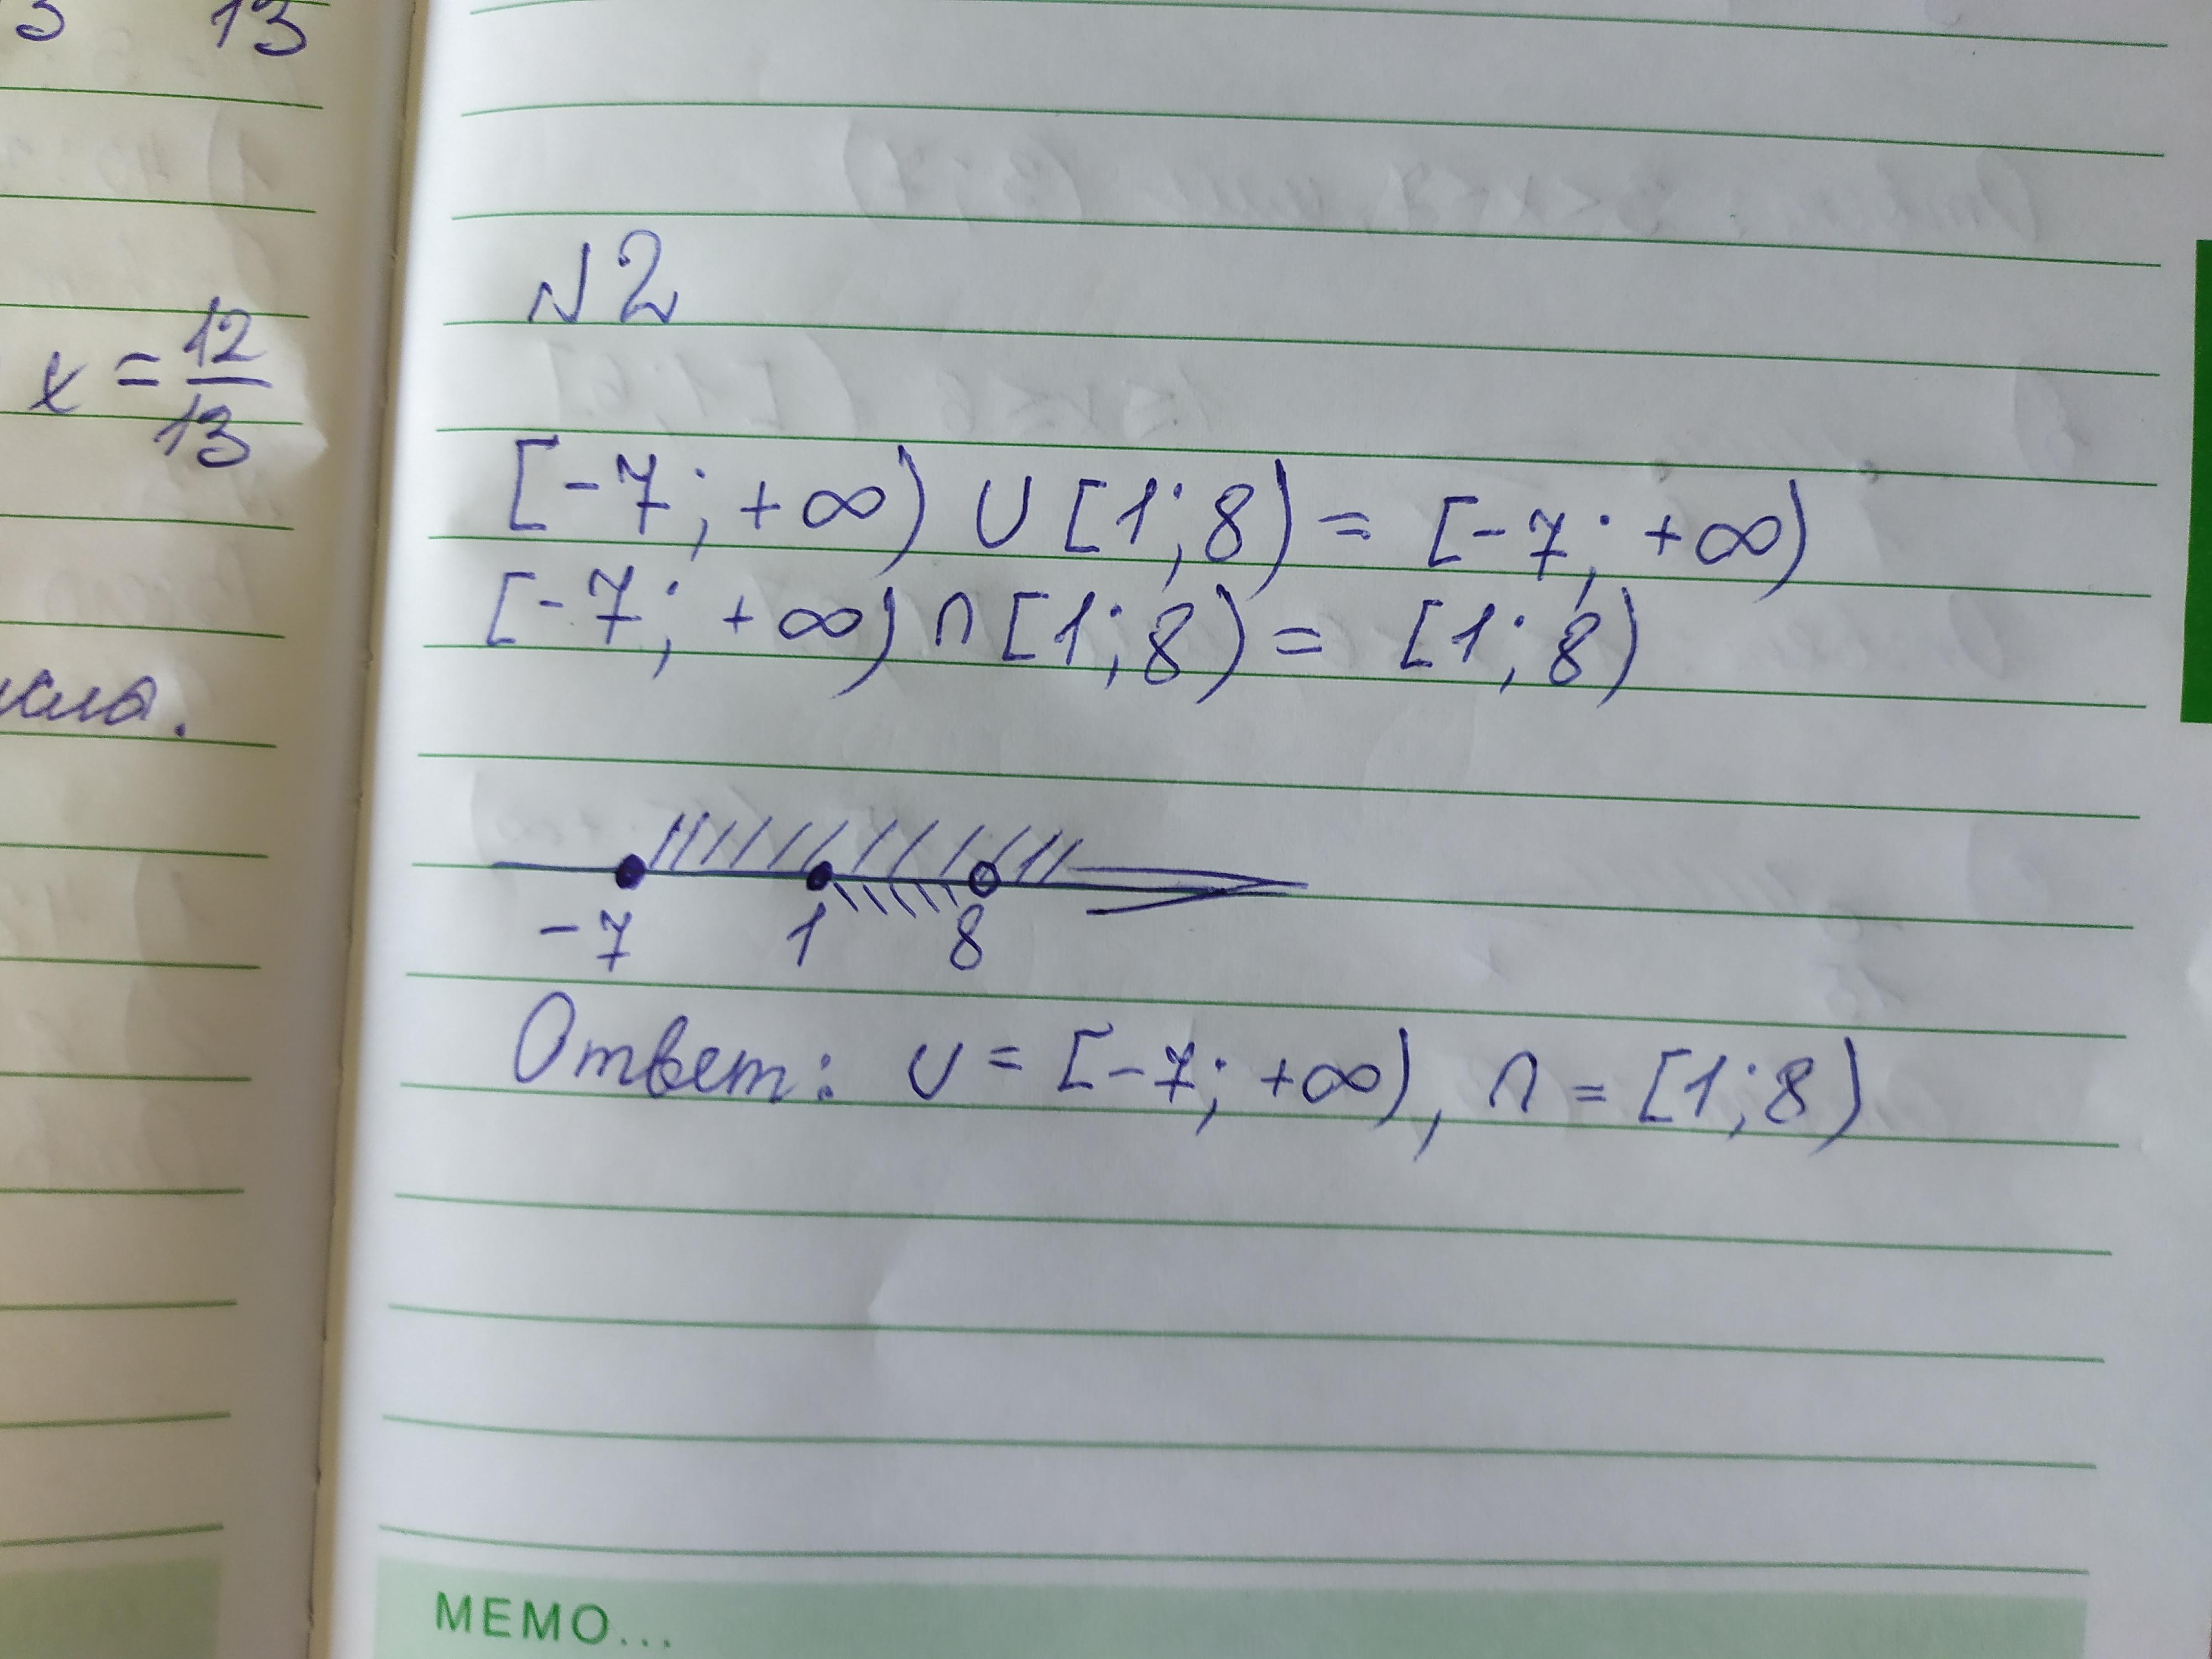 13
x = 12/13
N2
[-7; +∞) ∪ [1; 8) = [-7; +∞)
[-7; +∞) ∩ [1; 8) = [1; 8)
-7 1 8
Ответ: ∪ = [-7; +∞), ∩ = [1; 8)
MEMO...